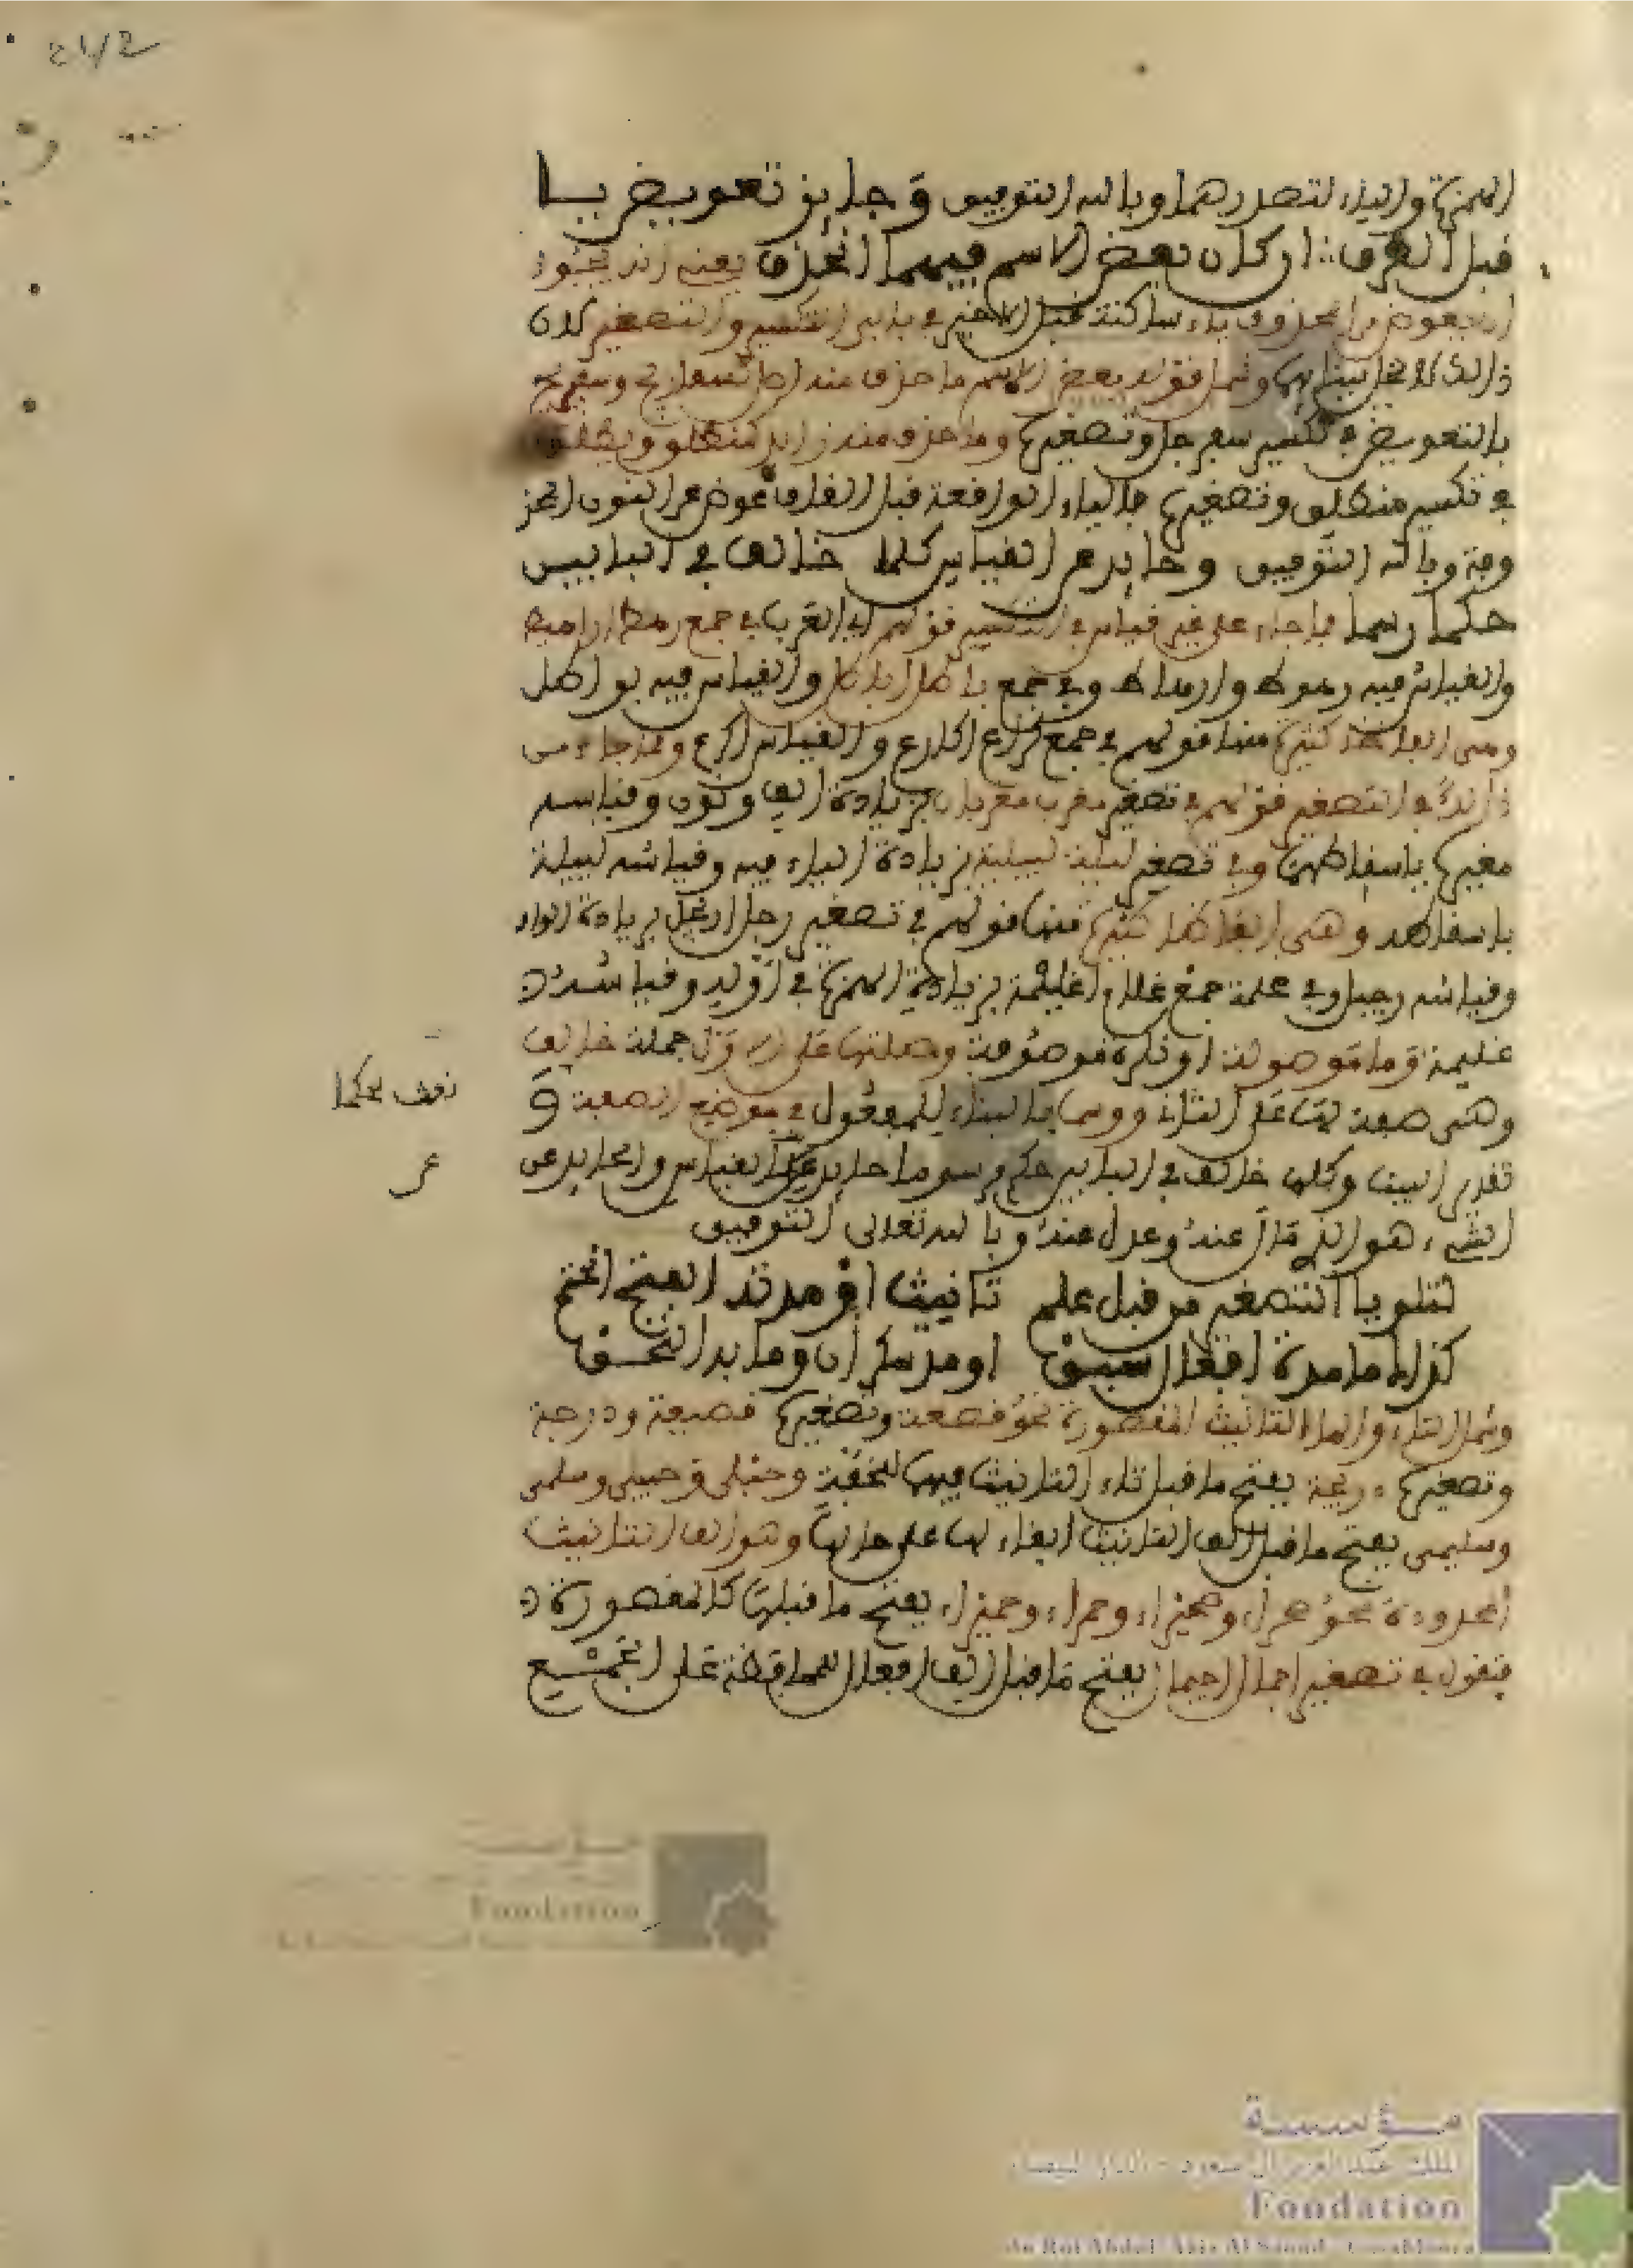 الهمزة والياء لتصدرهما وبالله التوفيق وجايز تعويض يا
قبل الطرف ان كان بعض الاسم فيهما انحذف يعني انه يجوز
ان يعوض من المحذوف ياء ساكنة قبل الاخر في بابي التكسير والتصغير كان
ذالك لا يخل ببنائها وشمل قوله بعض الاسم ما حذف منه اصل كسفاريج وسفيريج
بالتعويض في تكسير سفرجل وتصغيره وما حذف منه زايد كمنطلق
في تكسير منطلق وتصغيره فالياء الواقعة قبل القاف عوض عن النون المحذ
وفة وبالله التوفيق وحايد عن القياس كلما خالف في البابين
حكما رسما فما جاء على غير قياس في التكسير قولهم اي العرب في جمع رهط اراهيط
والقياس فيه رهوط وارهاط وفي جمع باطل اباطل والقياس فيه بواطل
وهي الفاظ كثيرة منها قولهم في جمع كراع اكارع والقياس اكرع ومما جاء من
ذالك في التصغير قولهم في تصغير مغرب مغربان بزيادة الف ونون وقياسه
مغيرب باسقاطهما وفي تصغير ليلة لييلية بزيادة الياء فيه وقياسه لييلة
باسقاطه وهي الفاظ كثيرة منها قولهم في تصغير رجل رويجل بزيادة الواو
وقياسه رجيل وفي غلمة جمع غلام اغيلمة بزيادة الهمزة في اوله وقياسه
غليمة وما موصولة او نكرة موصوفة وصلتها على الاول جملة خالف
وهي صفة لها على الثاني ورسما بالبناء للمفعول في موضع الصفة و
تقدير البيت وكلما خالف في البابين حكم رسم وما حايد عن القياس والحايد عن
الشيء هو الذي مال عنه وعدل عنه وبالله تعالى التوفيق
لتلو يا التصغير من قبل علم تانيث او مدته الفتح انحتم
كذاك ما مدة افعال سبق او مد سكران وما به التحق
وشمل التاء والف التانيث المقصورة نحو قصعة وتصغيرها قصيعة ودرجة
وتصغيرها دريجة بفتح ما قبل تاء التانيث فيها للخفة وحبلى وحبيلى وسلمى
وسليمى بفتح ما قبل الف التانيث ابقاء لها على حالها وهو الف التانيث
الممدودة نحو صحراء وصحيراء وحمراء وحميراء بفتح ما قبلها كالمقصورة
فتقول في تصغير اجمال اجيمال بفتح ما قبل الف افعال للمحافظة على الجمع
نصف حكما
عر